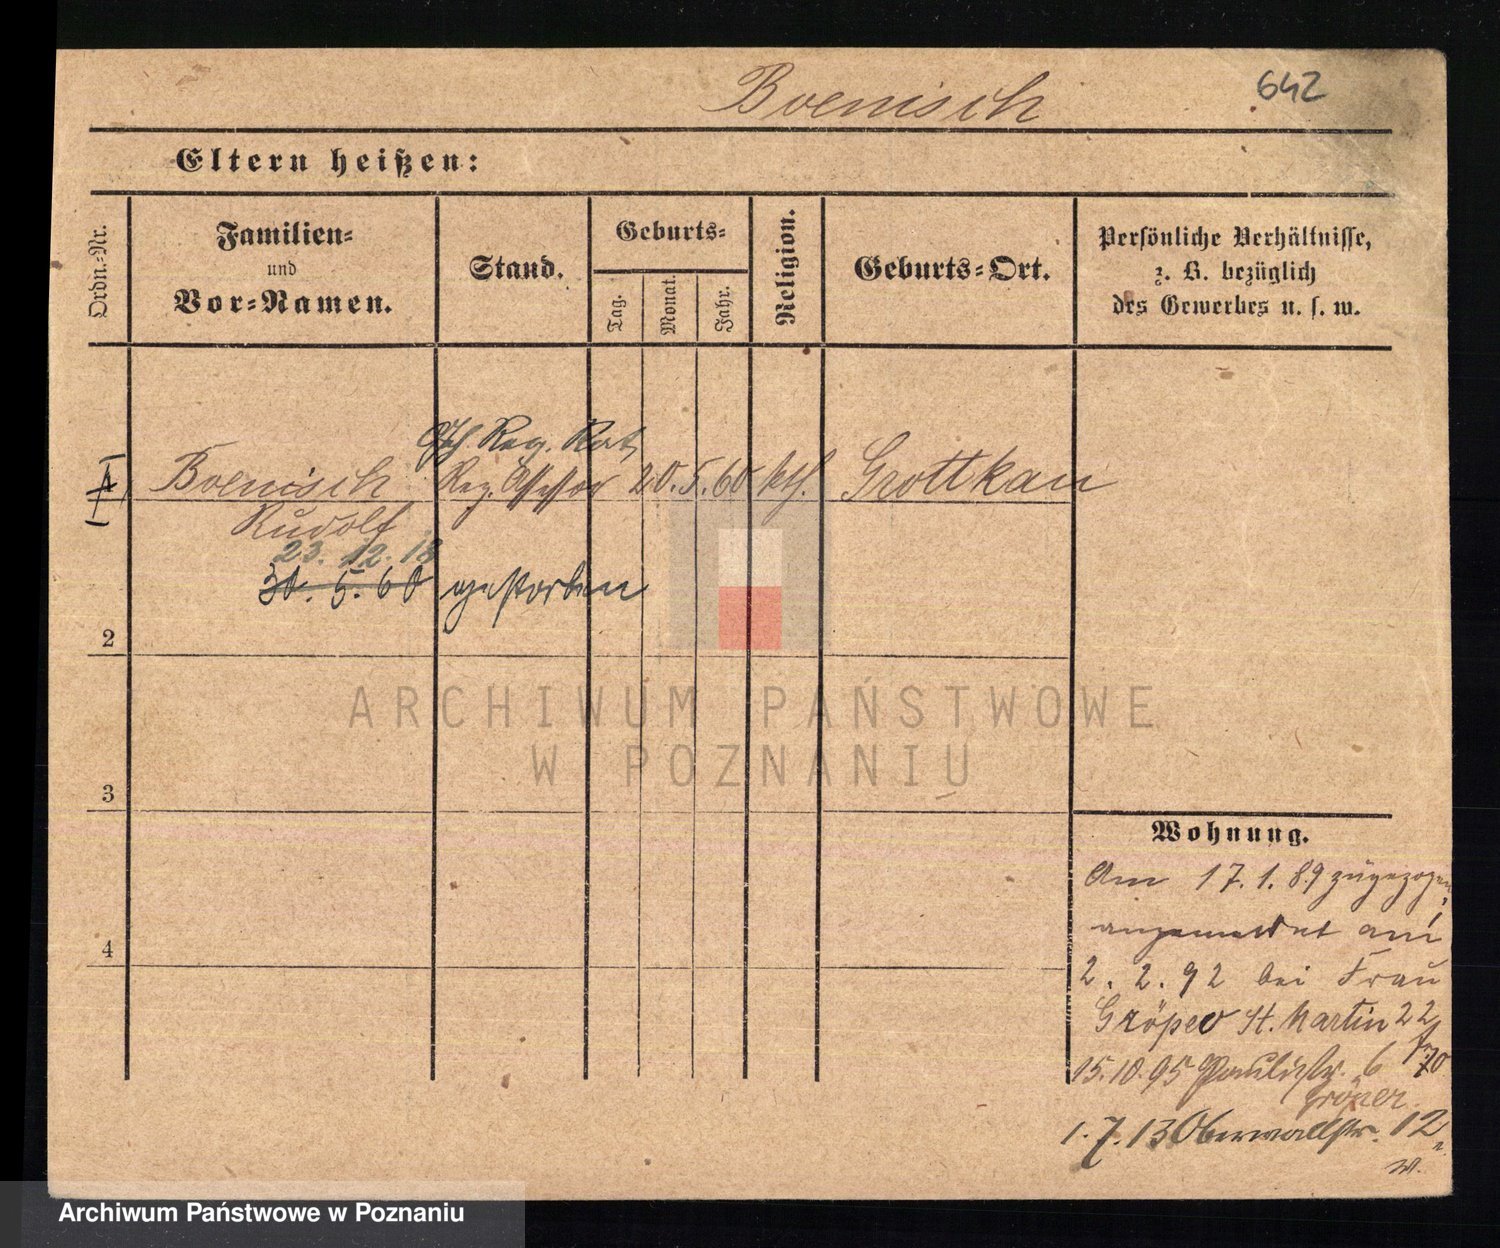 Boenisch
642
Eltern heißen:
Ordn.-Nr.
Familien-
und
Vor-Namen.
Stand.
Geburts-
Tag.
Monat.
Jahr.
Religion.
Geburts-Ort.
Persönliche Verhältnisse,
z. B. bezüglich
des Gewerbes u. s. w.
Geh. Reg. Rat
1 Boenisch Reg. Assessor 20. 5. 60 kth. Grottkau
Rudolf
23. 12. 18
30. 5. 60 gestorben
2
3
4
ARCHIWUM PAŃSTWOWE
W POZNANIU
Wohnung.
Am 17. 1. 89 zugezogen,
angemeldet am
2. 2. 92 bei Frau
St. Martin 22
15. 10. 95 Paulistr. 6
1. 7. 13 Oberwallstr. 12
Archiwum Państwowe w Poznaniu